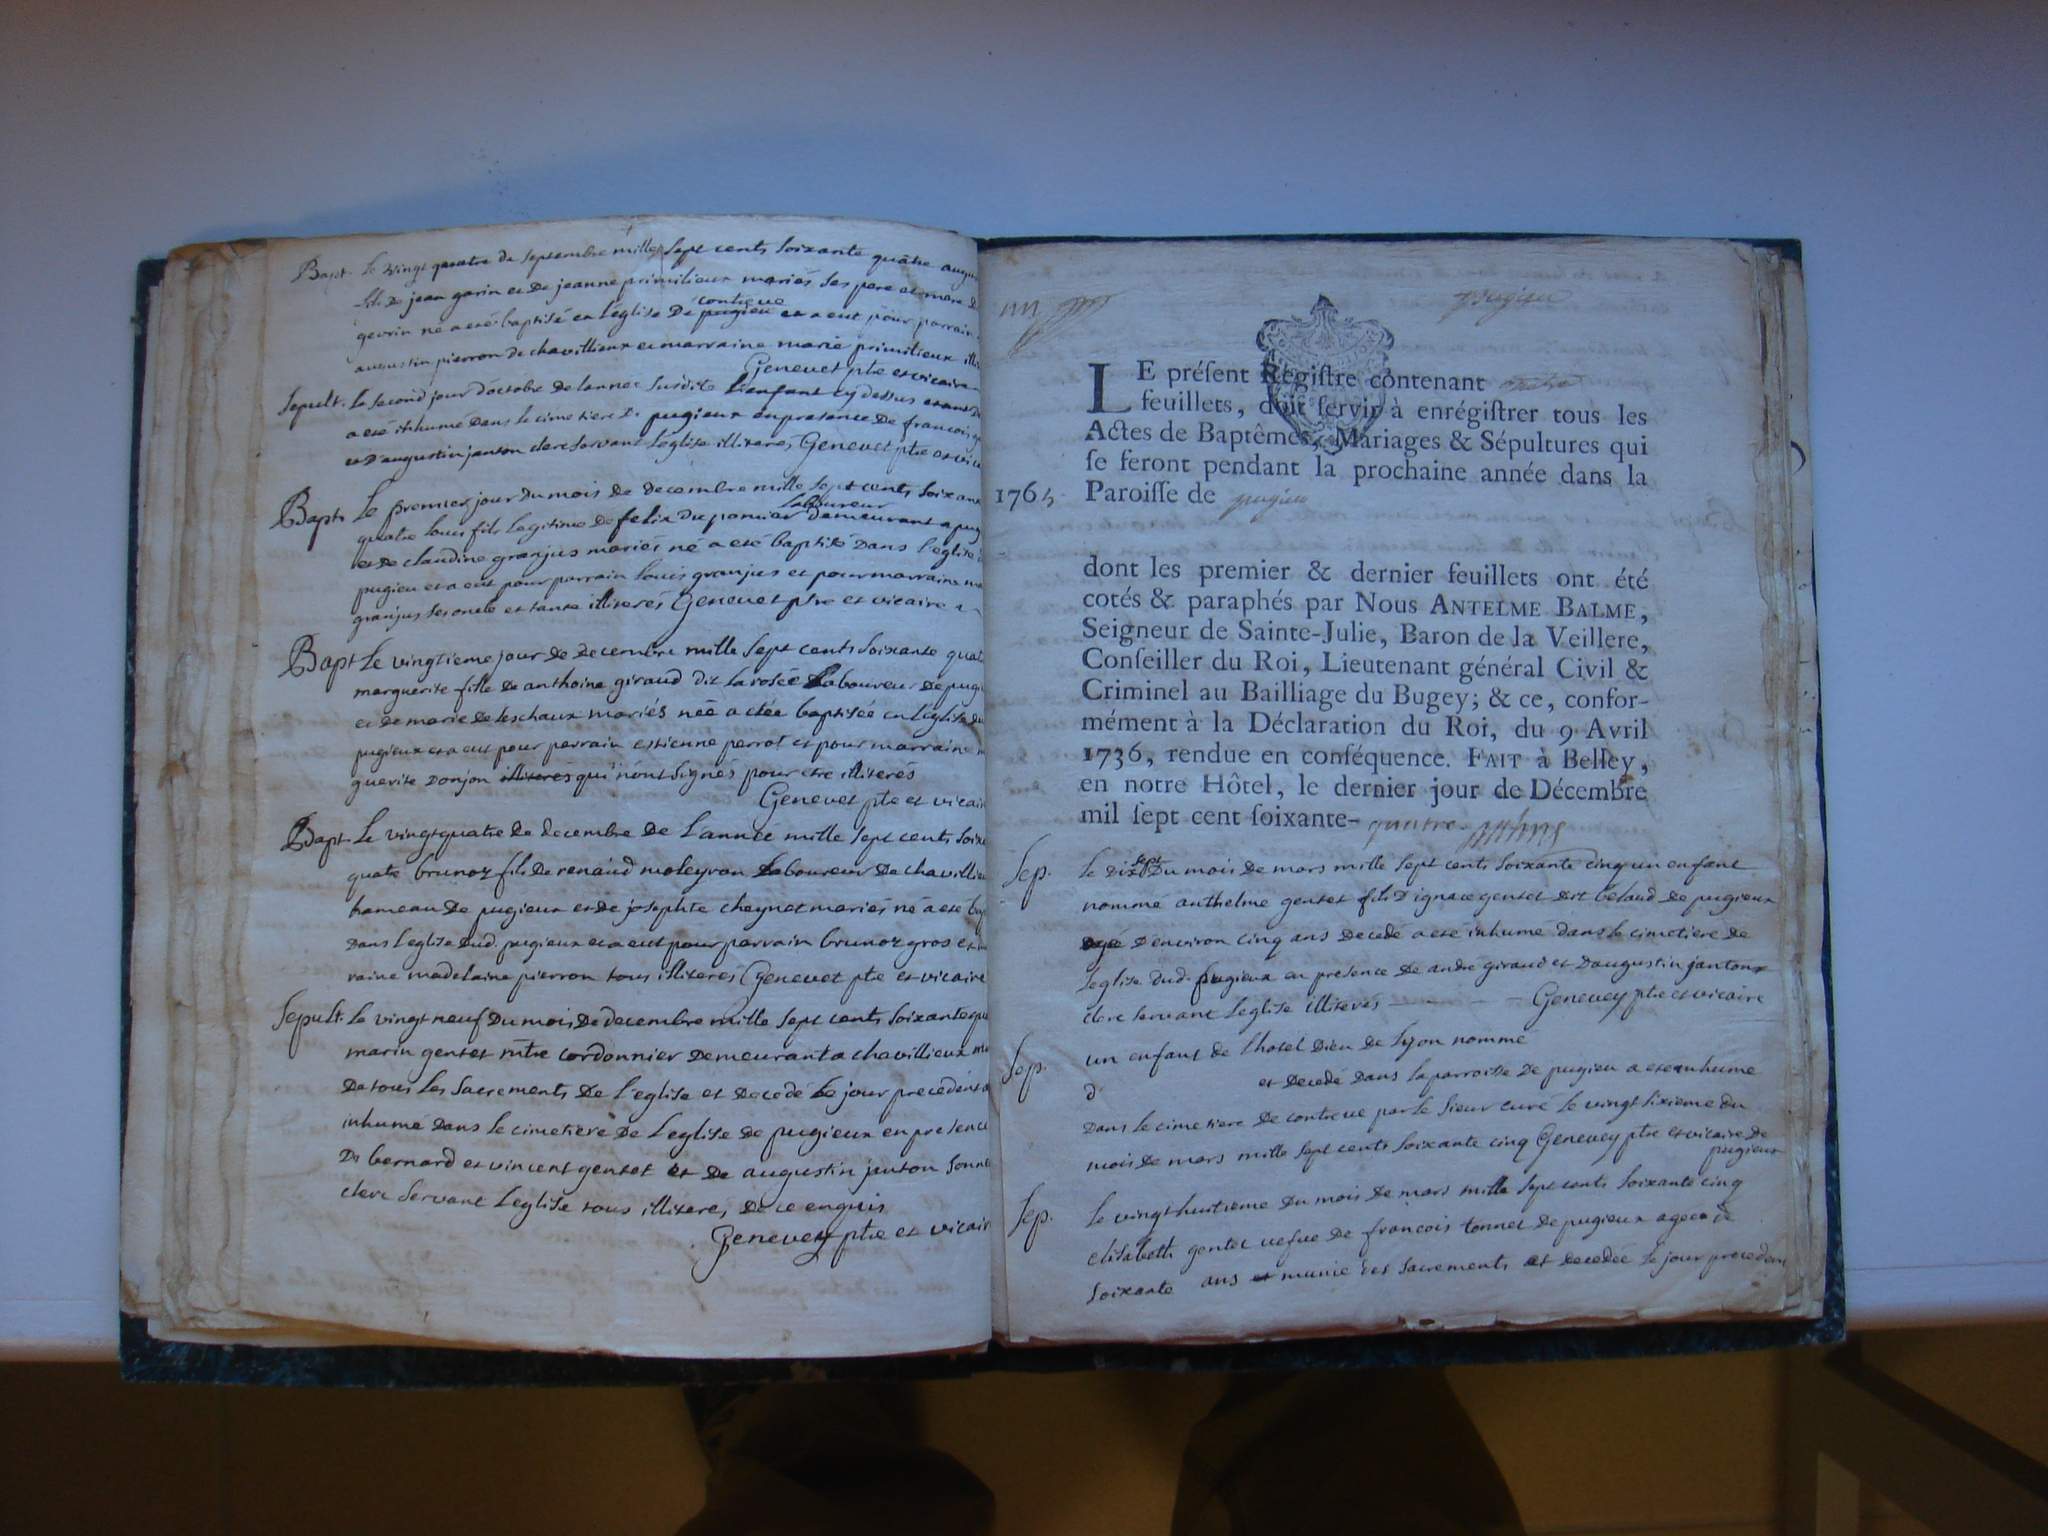 Bapt. Le vingt quatre de septembre mille sept cents soixante quatre augus
fils de jean gorin et de jeanne primilieux mariés ses pere et mere de
gevrin né a eté baptisé en l'église de pugieu contreve et a eut pour parrain
augustin pierron de chavillieux et marraine marie primilieux illi
Genevet ptre et vicaire
Sepult. Le second jour d'octobre de lannée susdite l'enfant cy dessus etant de
a eté ihhumé dans le cimetiere de pugieux en presence de francois
et d'augustin janton clerc servant l'eglise illiteres Genevet ptre et vica
Bapt. Le premier jour du mois de decembre mille sept cents soixan
quatre louis fils legitime de felix du pomier laboureur demeurant a pug
et de claudine granjus mariés né a eté baptisé dans l'eglise
pugieu et a eut pour parrain louis granjus et pour marraine ma
granjus ses oncle et tante illiterés Genevet ptre et vicaire
Bapt Le vingtieme jour de decembre mille sept cents soixante quat
marguerite fille de anthoine giraud dit larosée laboureur de pugi
et de marie de leschaux mariés née a etée baptisée en l'eglise du
pugieux et a eut pour parrain estienne perrot et pour marraine m
guerite donjon illiterés qui n'ont signés pour etre illiterés
Genevet ptre et vicair
Bapt. Le vingtquatre de decembre de l'année mille sept cents soixa
quate brunoz fils de renaud moleyron laboureur de chavillieu
hameau de pugieux et de josephte cheynet mariés né a eté bap
dans l'eglise dud. pugieux et a eut pour parrain brunoz gros et m
raine madelaine pierron tous illiteres Genevet ptre et vicaire
Sepult. Le vingt neuf du mois de decembre mille sept cents soixante qu
marin gentet mtre cordonnier demeurant a chavillieux mu
de tous les sacrements de l'eglise et decedé le jour precedent a
inhumé dans le cimetiere de l'eglise de pugieux en presence
de bernard et vincent gentet et de augustin janton sonne
clerc servant l'eglise tous illiteres, de ce enquis
Genevey ptre et vicair
pugieu
LE préſent Regiſtre contenant
feuillets, doit ſervir à enrégiſtrer tous les
Actes de Baptêmes, Mariages & Sépultures qui
ſe feront pendant la prochaine année dans la
1765 Paroiſſe de pugieu
dont les premier & dernier feuillets ont été
cotés & paraphés par Nous ANTELME BALME,
Seigneur de Sainte-Julie, Baron de la Veillere,
Conſeiller du Roi, Lieutenant général Civil &
Criminel au Bailliage du Bugey; & ce, confor-
mément à la Déclaration du Roi, du 9 Avril
1736, rendue en conſéquence. FAIT à Belley,
en notre Hôtel, le dernier jour de Décembre
mil ſept cent ſoixante- quatre
Sep. Le dix sept du mois de mars mille sept cents soixante cinq un enfant
nommé anthelme gentet fils d'ignace gentet dit belaud de pugieux
agé d'environ cinq ans decedé a eté inhumé dans le cimetiere de
l'eglise dud. pugieux en presence de andré giraud et d'augustin jantoux
clerc servant l'eglise illiterés Genevey ptre et vicaire
Sep. un enfant de l'hotel dieu de lyon nommé
d' et decedé dans la parroisse de pugieu a eté inhume
dans le cimetiere de contreve par le sieur curé le vingt sixieme du
mois de mars mille sept cents soixante cinq Genevey ptre et vicaire de
pugieux
Sep. Le vingt huitieme du mois de mars mille sept cents soixante cinq
elisabeth gentet vefve de francois tonnet de pugieux agee de
soixante ans et munie des sacrements et decedée le jour precedent